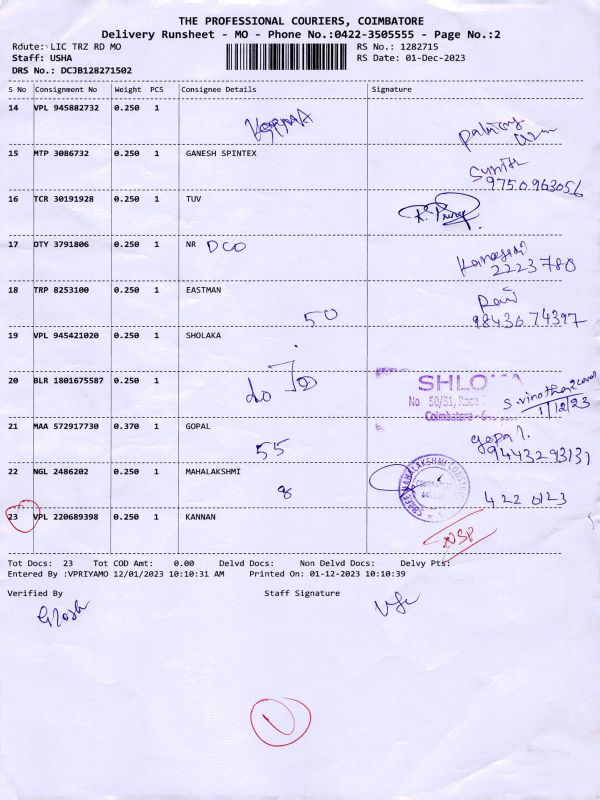 THE PROFESSIONAL COURIERS, COIMBATORE
Delivery Runsheet - MO - Phone No.:0422-3505555 - Page No.:2
Rdute: LIC TRZ RD MO
RS No.: 1282715
Staff: USHA
RS Date: 01-Dec-2023
DRS No.: DCJB128271502
S No Consignment No Weight PCS Consignee Details Signature
14 VPL 945882732 0.250 1
15 MTP 3086732 0.250 1 GANESH SPINTEX
9750963056
16 TCR 30191928 0.250 1 TUV
17 DTY 3791806 0.250 1 NR DCO
2223780
18 TRP 8253100 0.250 1 EASTMAN
50 Ravi
9843074397
19 VPL 945421020 0.250 1 SHOLAKA
20 BLR 1801675587 0.250 1
No 50/51, Race
Coimbatore
1/12/23
21 MAA 572917730 0.370 1 GOPAL
55 gopal
9443293131
22 NGL 2486202 0.250 1 MAHALAKSHMI
8
23 VPL 220689398 0.250 1 KANNAN
NSP
Tot Docs: 23 Tot COD Amt: 0.00 Delvd Docs: Non Delvd Docs: Delvy Pts:
Entered By :VPRIYAMO 12/01/2023 10:10:31 AM Printed On: 01-12-2023 10:10:39
Verified By Staff Signature